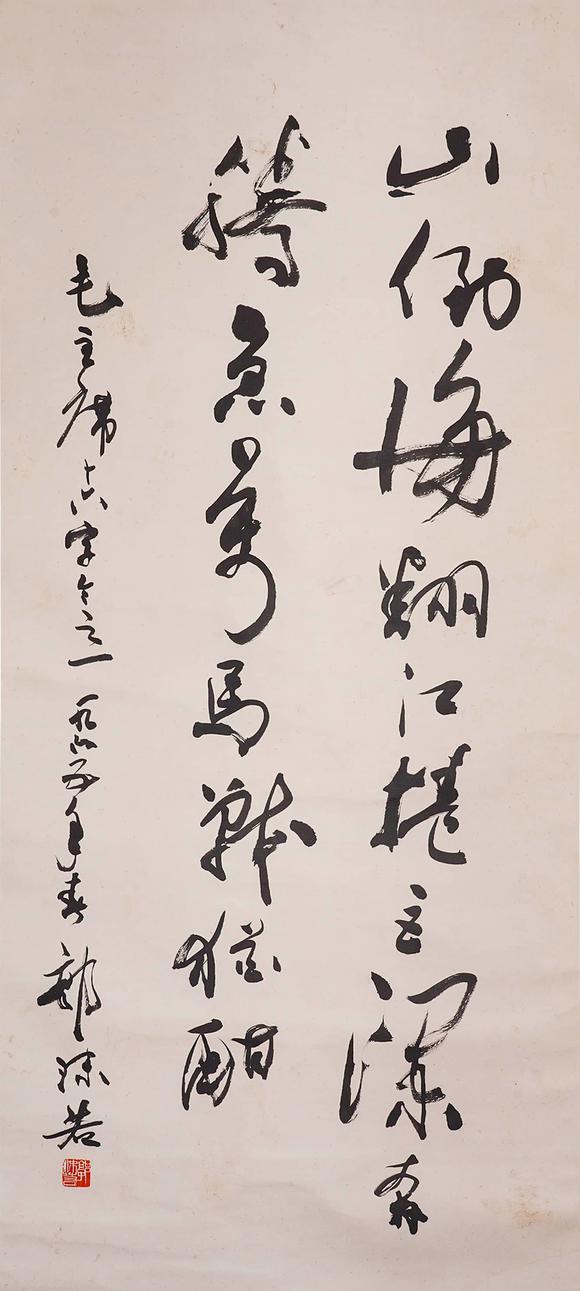 山倒海翻江捲巨瀾奔
騰急萬馬戰猶酣
毛主席十六字令之一 一九六五年春 郭沫若
郭沫若